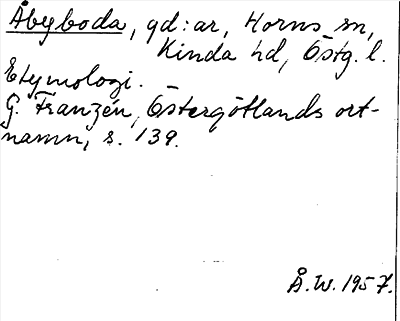 Åbyboda, gd:ar, Horns sn,
Kinda hd, Östg. l.
Etymologi.
G. Franzén, Östergötlands ort-
namn, s. 139.
Å.W. 1957.